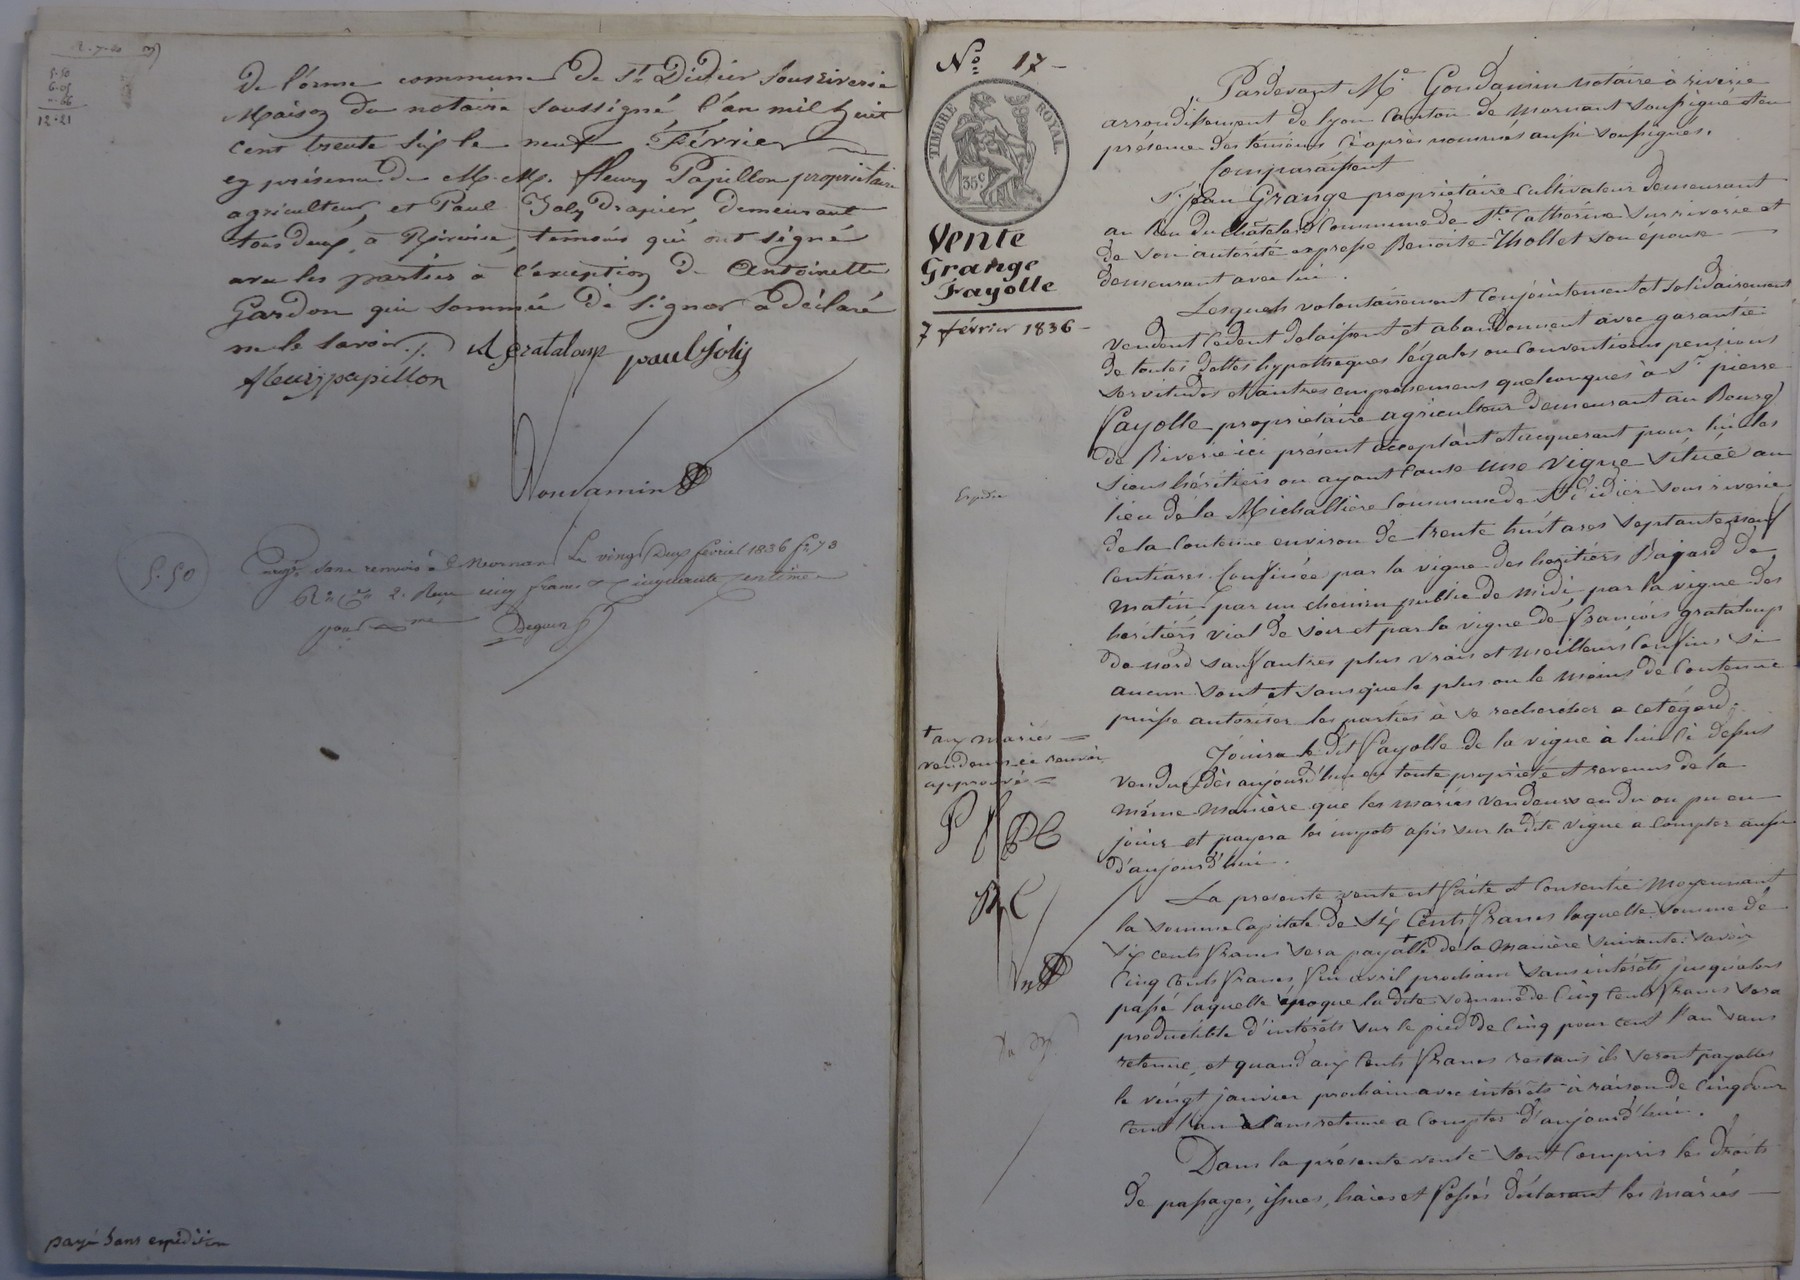 5-50
6-05
12-21
de l'orme commune de St Didier sous riverie
Maison du notaire soussigné, l'an mil huit
cent trente six le neuf Février
en présence de M. M. fleury Papillon propriétaire
agriculteur, et Paul Joly Drapier, demeurant
tous deux à Riverie, temoins qui ont signé
avec les parties à l'exception de Antoinette
Gardon qui sommée de signer a déclaré
ne le savoir.
Grataloup paul Joly
fleury papillon
Goudamin
5.50
sans renvois à Mornant Le vingt Deux fevrier 1836 f° 73
2. Reçu cinq francs cinquante centimes
Deguin
payé sans expédition
No 17 -
TIMBRE ROYAL
35c
Vente
Grange
Fayolle
7 février 1836 -
Expédié
+ aux mariés =
vendeurs ce renvoi
approuvé =
Pardevant Me Goudamin notaire à riverie
arrondissement de Lyon Canton de Mornant soussigné et en
présence des témoins ci après nommés aussi soussignés.
Comparaissent
Sr jean Grange propriétaire cultivateur demeurant
au lieu du Châtelard Commune de Ste Catherine sur riverie et
de son autorité expresse Benoite Thollet son épouse
demeurant avec lui.
Lesquels volontairement Conjointement et solidairement
vendent cedent delaissent et abandonnent avec garantie
de toutes dettes hypotheques légales ou Conventionnes pensions
servitudes et autres empechemens quelconques à Sr pierre
Fayolle propriétaire agriculteur demeurant au Bourg
de Riverie ici présent acceptant et acquerant pour lui les
siens héritiers ou ayant Cause une vigne située au
lieu de la Michallière Commune de St Didier sous riverie
de la Contenue environ de trente huit ares septante neuf
Centiares Confinée par la vigne des héritiers Bajard de
matin, par un chemin public de midi, par la vigne des
héritiers vial de soir et par la vigne de françois grataloup
de nord sauf autres plus vrais et meilleurs Confins si
aucuns sont et sans que le plus ou le moins de Contenue
puisse autoriser les parties à se rechercher a cet égard.
Jouira le dit Fayolle de la vigne à lui ci dessus
vendue dès aujourd'hui en toute propriété et revenus de la
même manière que les mariés vendeurs en du ou pu en
jouir et payera les impots assis sur la dite vigne a Compter aussi
d'aujourd'hui.
La presente vente est faite et Consentie Moyennant
la somme Capitale de Six Cents francs laquelle somme de
six cents francs sera payable + de la manière suivante: savoir
Cinq Cents francs, fin avril prochain sans intérêts jusqu'alors
passé laquelle époque la dite somme de Cinq Cents francs sera
productible d'intérêts sur le pied de Cinq pour cent l'an sans
retenue, et quand aux Cents francs restans ils seront payables
le vingt janvier prochain avec intérêts à raison de Cinq pour
cent l'an sans retenue a Compter d'aujourd'hui.
Dans la présente vente sont Compris les droits
de passages, issues, haies et fossés déclarant les mariés